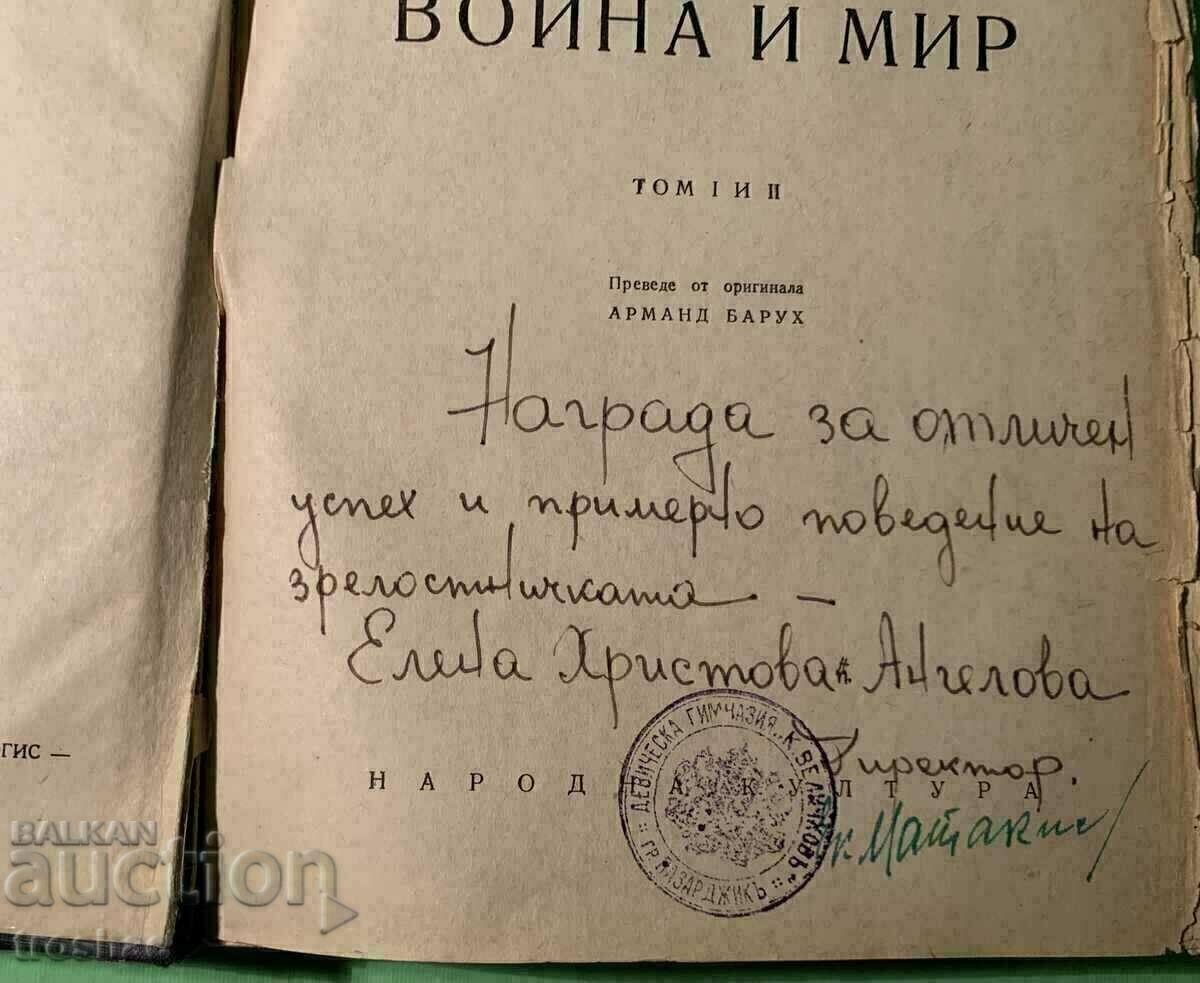 ВОЙНА И МИР
ТОМ I И II
Преведе от оригинала
АРМАНД БАРУХ
Награда за отличен
успех и примерно поведение на
зрелостничката –
Елена Христова Ангелова
Директор.
НАРОДНА КУЛТУРА
ДЕВИЧЕСКА ГИМНАЗИЯ „К. ВЕЛИЧКОВЪ“
ГР. ПАЗАРДЖИКЪ
ГИС —
BALKAN
auction